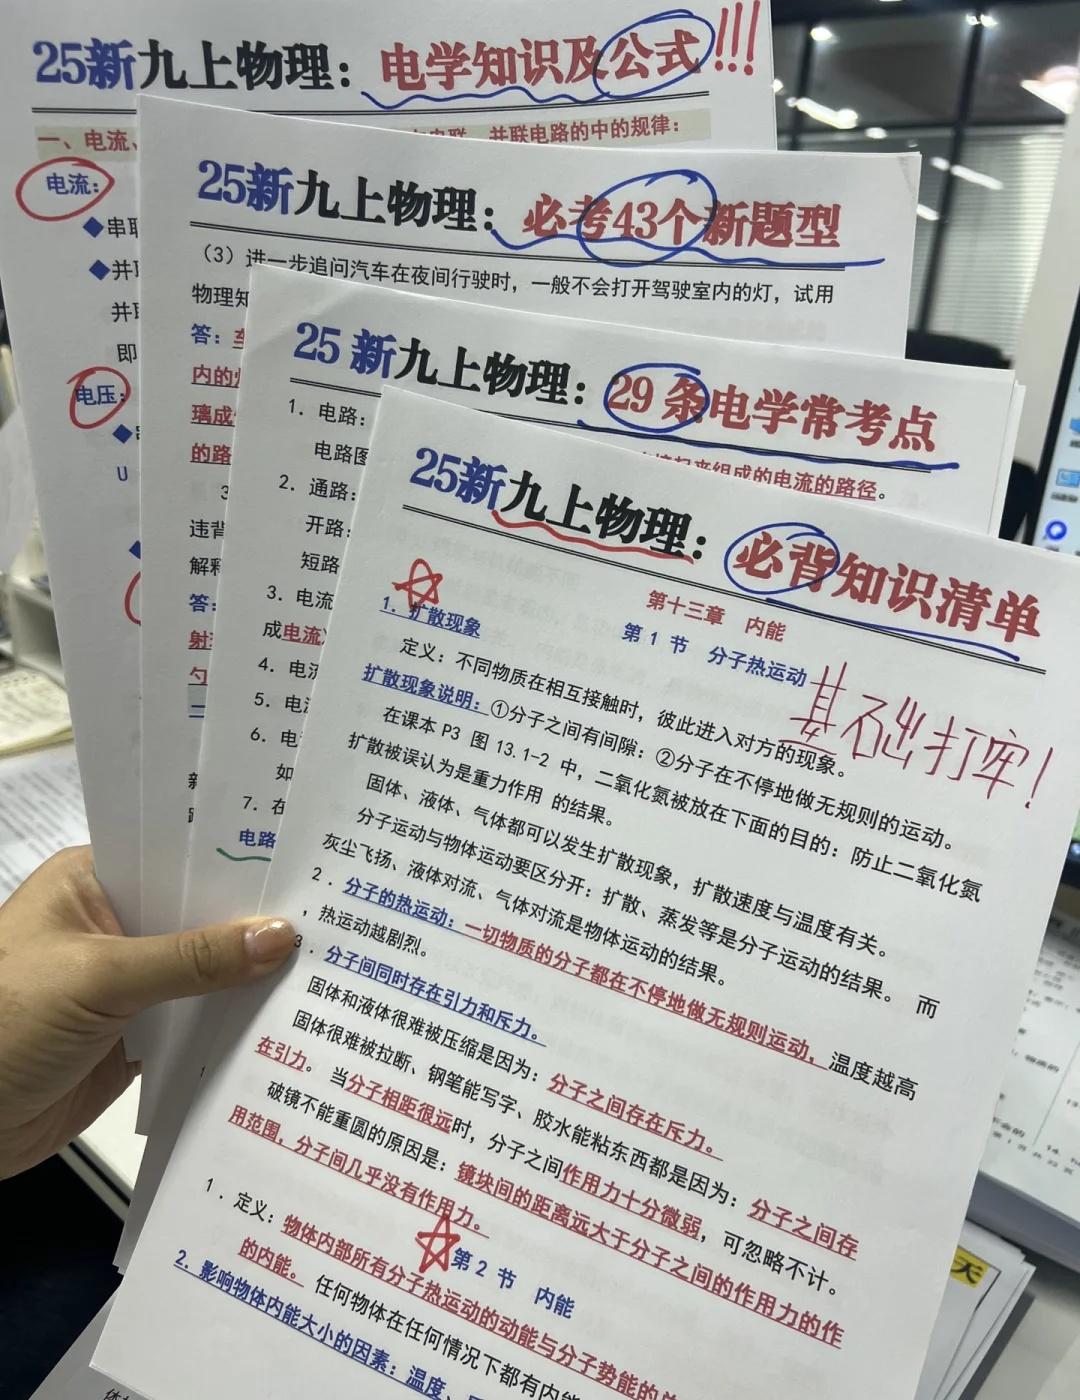 25新九上物理：电学知识及公式!!!
一、电流、
联、并联电路的中的规律：
电流：
◆串联
◆并联
并联
即
电压：
U
25新九上物理：必考43个新题型
（3）进一步追问汽车在夜间行驶时，一般不会打开驾驶室内的灯，试用
物理知
答：车
内的灯
璃成像
的路
3
违背
解释
答：
射
勺
25 新九上物理：29 条电学常考点
1. 电路：
接起来组成的电流的路径。
电路图
2. 通路：
开路：
短路
3. 电流
成电流
4. 电流
5. 电流
6. 电
如
7. 在
电路
25新九上物理：必背知识清单
第十三章 内能
第 1 节 分子热运动
基础打牢！
1. 扩散现象
定义：不同物质在相互接触时，彼此进入对方的现象。
扩散现象说明：①分子之间有间隙：②分子在不停地做无规则的运动。
在课本 P3 图 13.1-2 中，二氧化氮被放在下面的目的：防止二氧化氮
扩散被误认为是重力作用 的结果。
固体、液体、气体都可以发生扩散现象，扩散速度与温度有关。
分子运动与物体运动要区分开：扩散、蒸发等是分子运动的结果。而
灰尘飞扬、液体对流、气体对流是物体运动的结果。
2．分子的热运动：一切物质的分子都在不停地做无规则运动，温度越高
，热运动越剧烈。
3．分子间同时存在引力和斥力。
固体和液体很难被压缩是因为：分子之间存在斥力。
固体很难被拉断、钢笔能写字、胶水能粘东西都是因为：分子之间存
在引力。当分子相距很远时，分子之间作用力十分微弱，可忽略不计。
破镜不能重圆的原因是：镜块间的距离远大于分子之间的作用力的作
用范围，分子间几乎没有作用力。
第 2 节 内能
1．定义：物体内部所有分子热运动的动能与分子势能的总
的内能。任何物体在任何情况下都有内能
2. 影响物体内能大小的因素：温度、
天